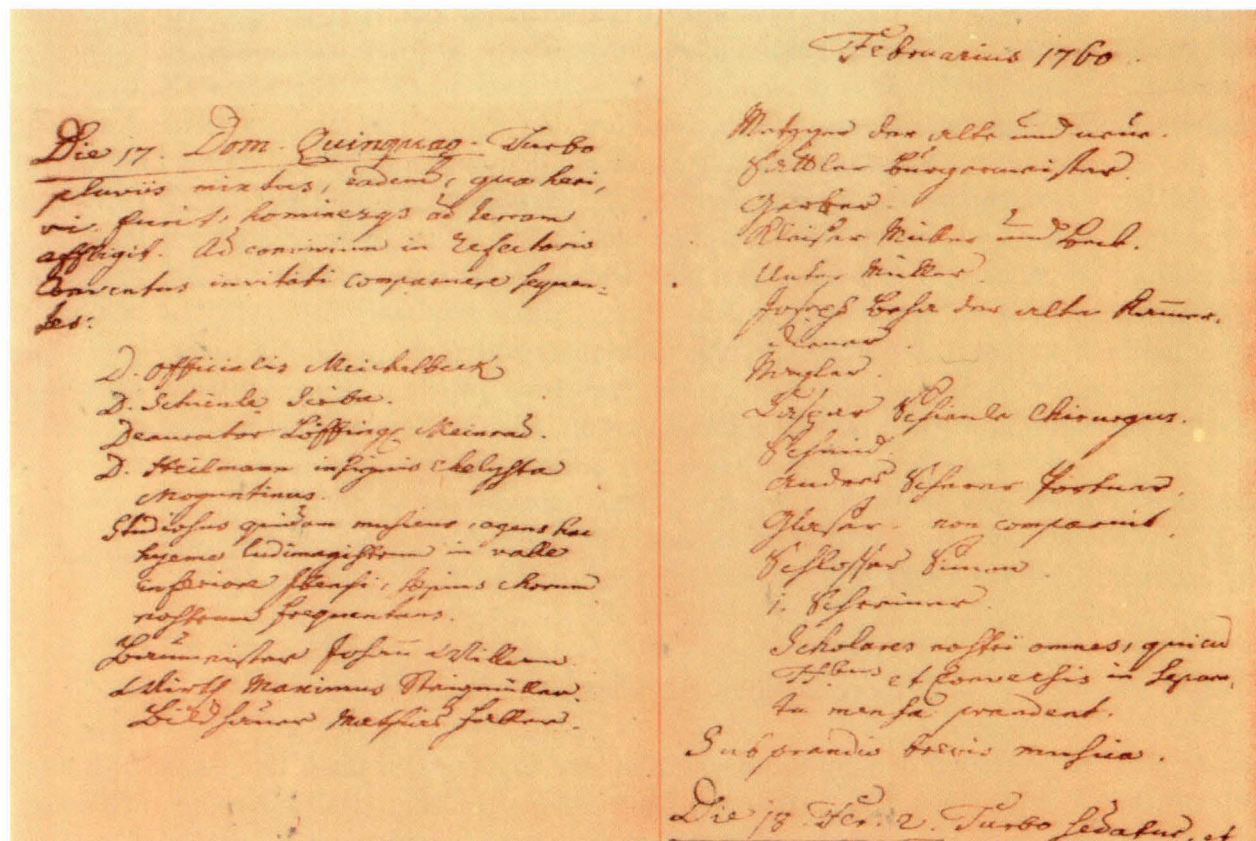 Die 17. Dom. Quinquag. Turbo
pluviis mixtus, eadem, qua heri,
vi furit, hominesqs ad terram
affligit. Ad convivium in Refectorio
Conventus invitati comparuere sequen-
tes:
D. Officialis Meichelbeck
D. Schienle Scriba.
Deaurator Löffing Meinrad.
D. Heilmann insignis chelysta
Moguntinus.
Studiosus quidam musicus, agens hac
hyeme ludimagistrum in valle
inferiore, sepius chorum
nostrum frequentans.
Baumeister Johann Willam.
Wirth Maximus Steigmüller.
Bildhauer Mathias Faller.
Februarius 1760
Metzger der alte und neue.
Sattler Burgermeister.
Gerber.
Kleiser Müller und Beck.
Unter Müller.
Joseph Beha der alte Kam̄er-
diener.
Caspar Schienle Chirurgus.
Schmid.
Andres Scherer Portner.
Glaser. non comparuit.
Schlosser Simon
1. Schreiner.
Scholares nostri omnes, qui cu
FFbus et Conversis in separa-
ta mensa prandent.
Sub prandio brevis musica.
Die 18. Fer. 2. Turbo sedatur, et